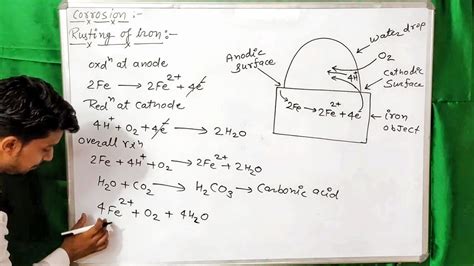 Corrosion:-
Rusting of Iron:-
oxdⁿ at anode
2Fe → 2Fe²⁺ + 4e⁻
Redⁿ at Cathode
4H⁺ + O₂ + 4e⁻ → 2H₂O
overall rxⁿ
2Fe + 4H⁺ + O₂ → 2Fe²⁺ + 2H₂O
H₂O + CO₂ → H₂CO₃ → Carbonic acid
4Fe²⁺ + O₂ + 4H₂O
water drop
Anodic
Surface
O₂
4H⁺
Cathodic
Surface
2Fe → 2Fe²⁺ + 4e⁻
iron
object